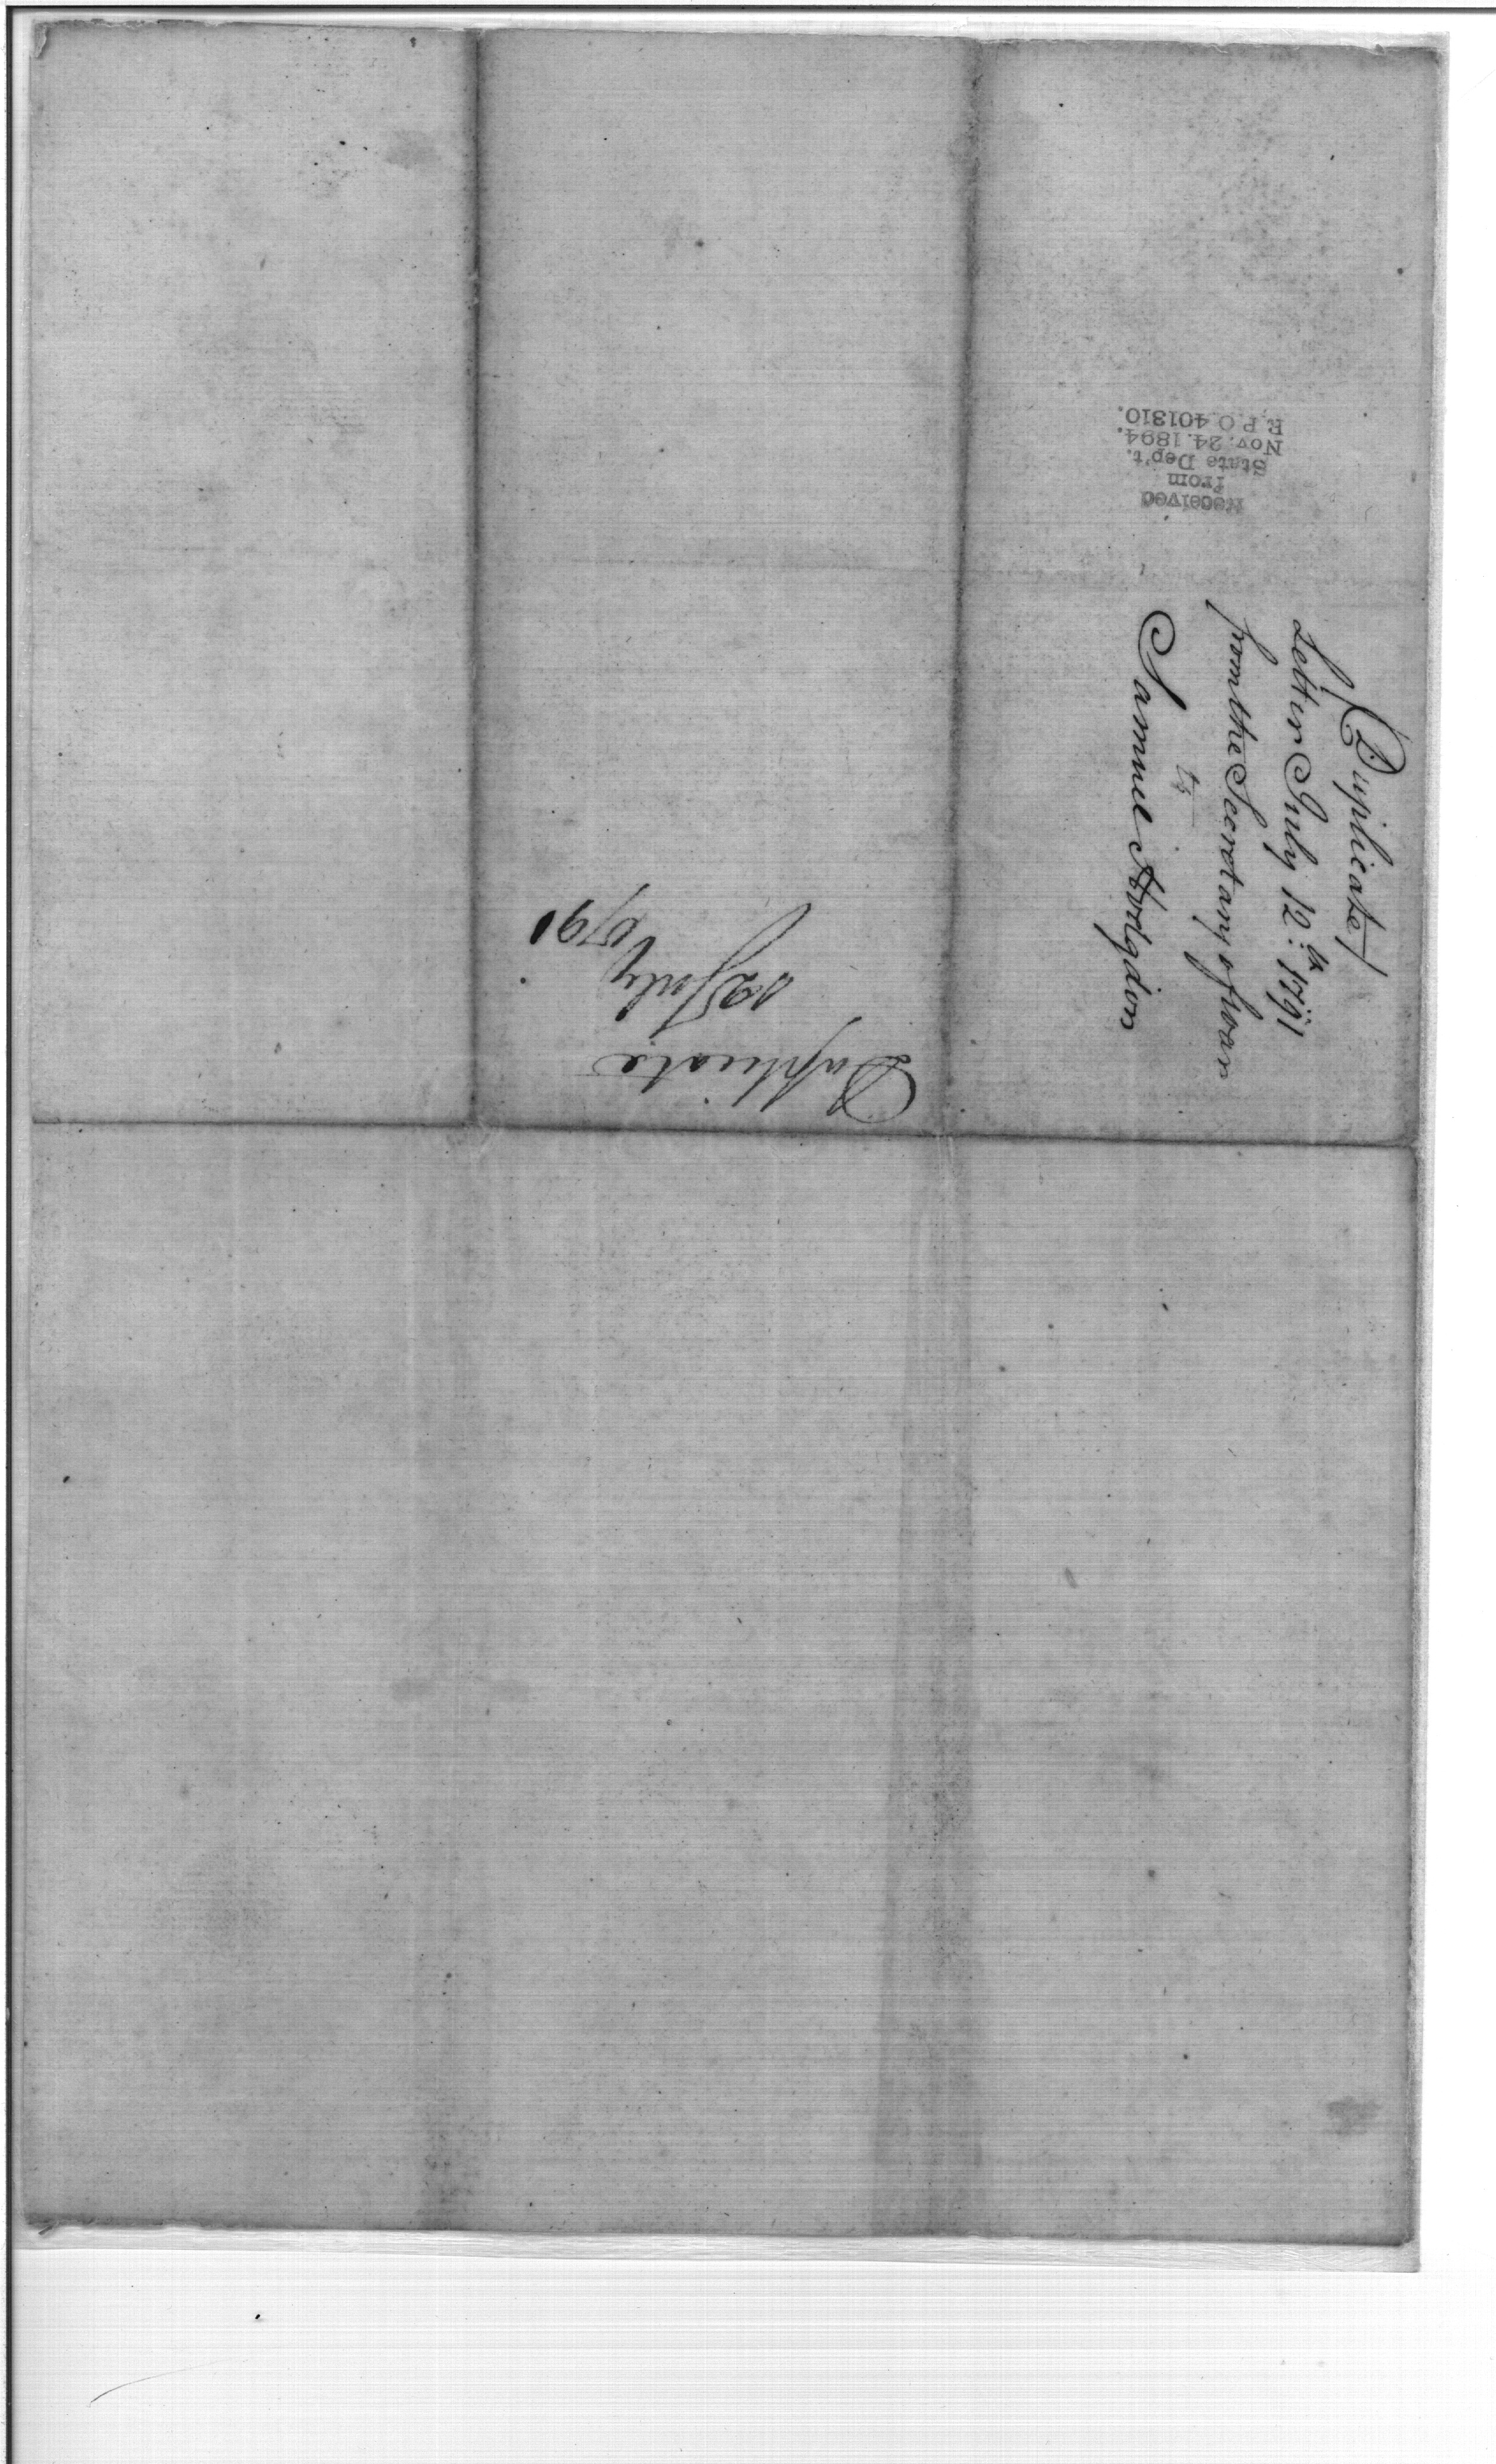 (Duplicate)
Letter July 12th. 1791
from the Secretary of war
to
Samuel Hodgdon
Duplicate
12 July
1791
Received
from
State Dep't.
Nov. 24. 1894.
R. P. O. 401310.